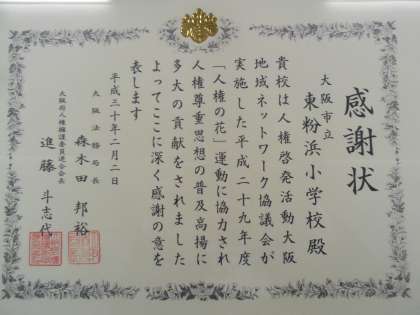 感謝状
大阪市立
東粉浜小学校殿
貴校は人権啓発活動大阪
地域ネットワーク協議会が
実施した平成二十九年度
「人権の花」運動に協力され
人権尊重思想の普及高揚に
多大の貢献をされました
よってここに深く感謝の意を
表します
平成三十年二月二日
大阪法務局長
森木田邦裕
大阪府人権擁護委員連合会長
進藤斗志代